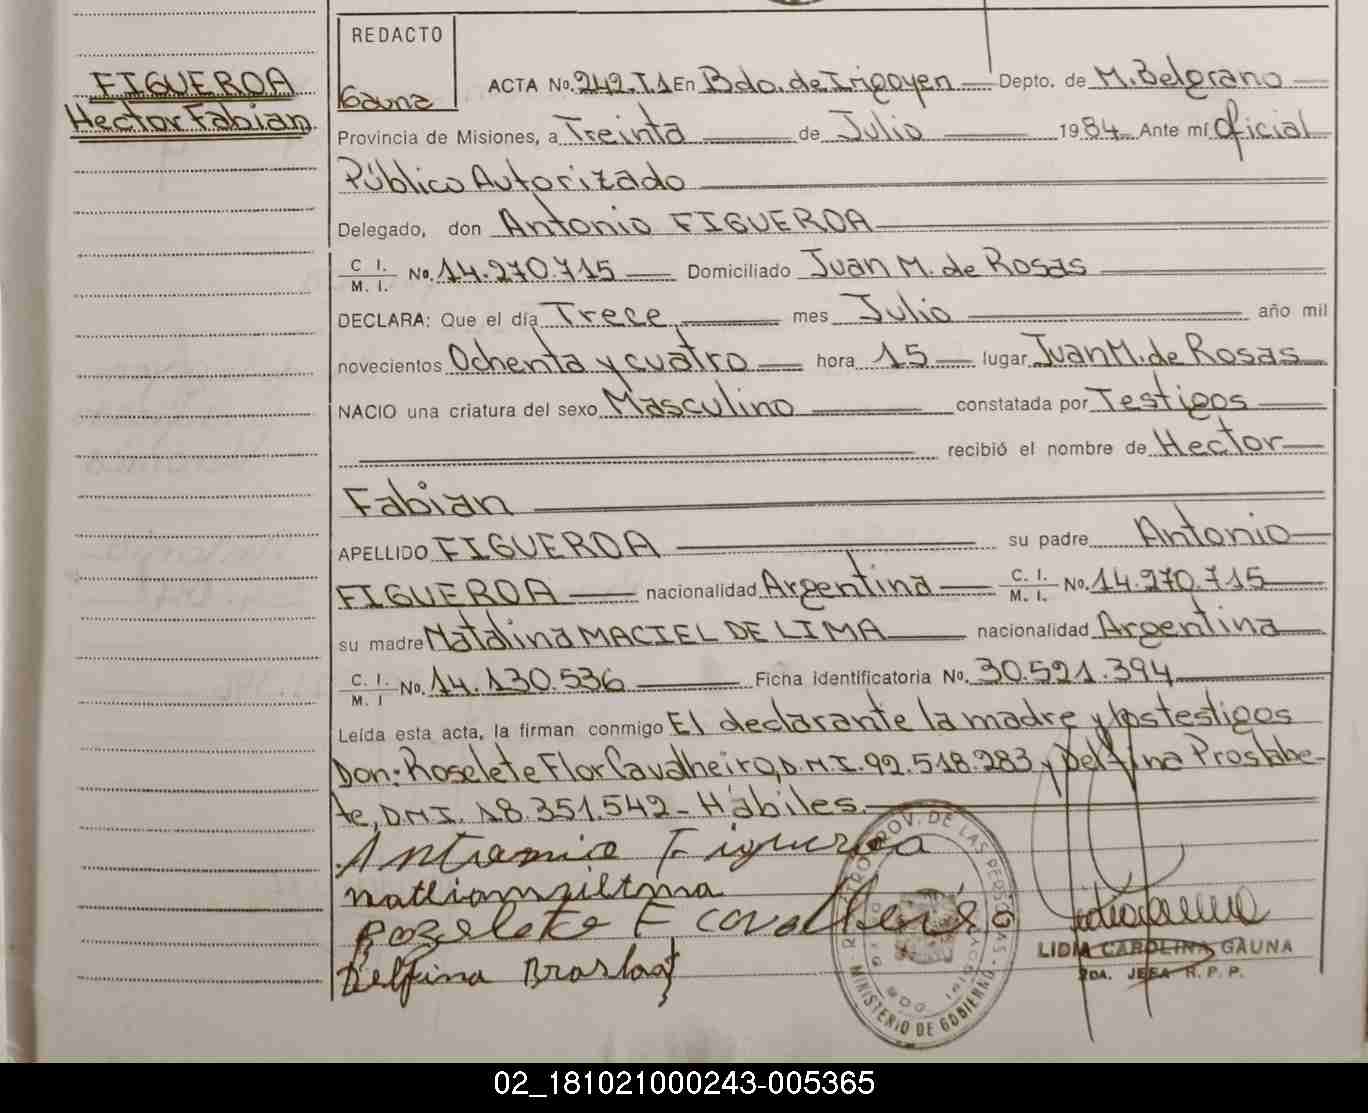 REDACTO
Gauna
FIGUEROA
Hector Fabian
ACTA No. 242.T.1 En Bdo. de Irigoyen Depto. de M. Belgrano
Provincia de Misiones, a Treinta de Julio 1984 Ante mí Oficial
Público Autorizado
Delegado, don Antonio FIGUEROA
C. I. / M. I. No. 14.270.715 Domiciliado Juan M. de Rosas
DECLARA: Que el día Trece mes Julio año mil
novecientos Ochenta y cuatro hora 15 lugar Juan M. de Rosas
NACIO una criatura del sexo Masculino constatada por Testigos
recibió el nombre de Hector
Fabian
APELLIDO FIGUEROA su padre Antonio
FIGUEROA nacionalidad Argentina C. I. / M. I. No. 14.270.715
su madre Natalina MACIEL DE LIMA nacionalidad Argentina
C. I. / M. I No. 14.130.536 Ficha identificatoria No. 30.521.394
Leída esta acta, la firman conmigo El declarante la madre y los testigos
Don: Roselete Flor Cavalheiro, D.M.I. 92.518.283 y Delfina Proslabe-
te, D.M.I. 18.351.542 - Hábiles
Antonio Figueroa
Rozelete F Cavalheiro
Delfina
PROV. DE LAS PERSONAS
MINISTERIO DE GOBIERNO
LIDIA CAROLINA GAUNA
2DA. JEFA R. P. P.
02_181021000243-005365